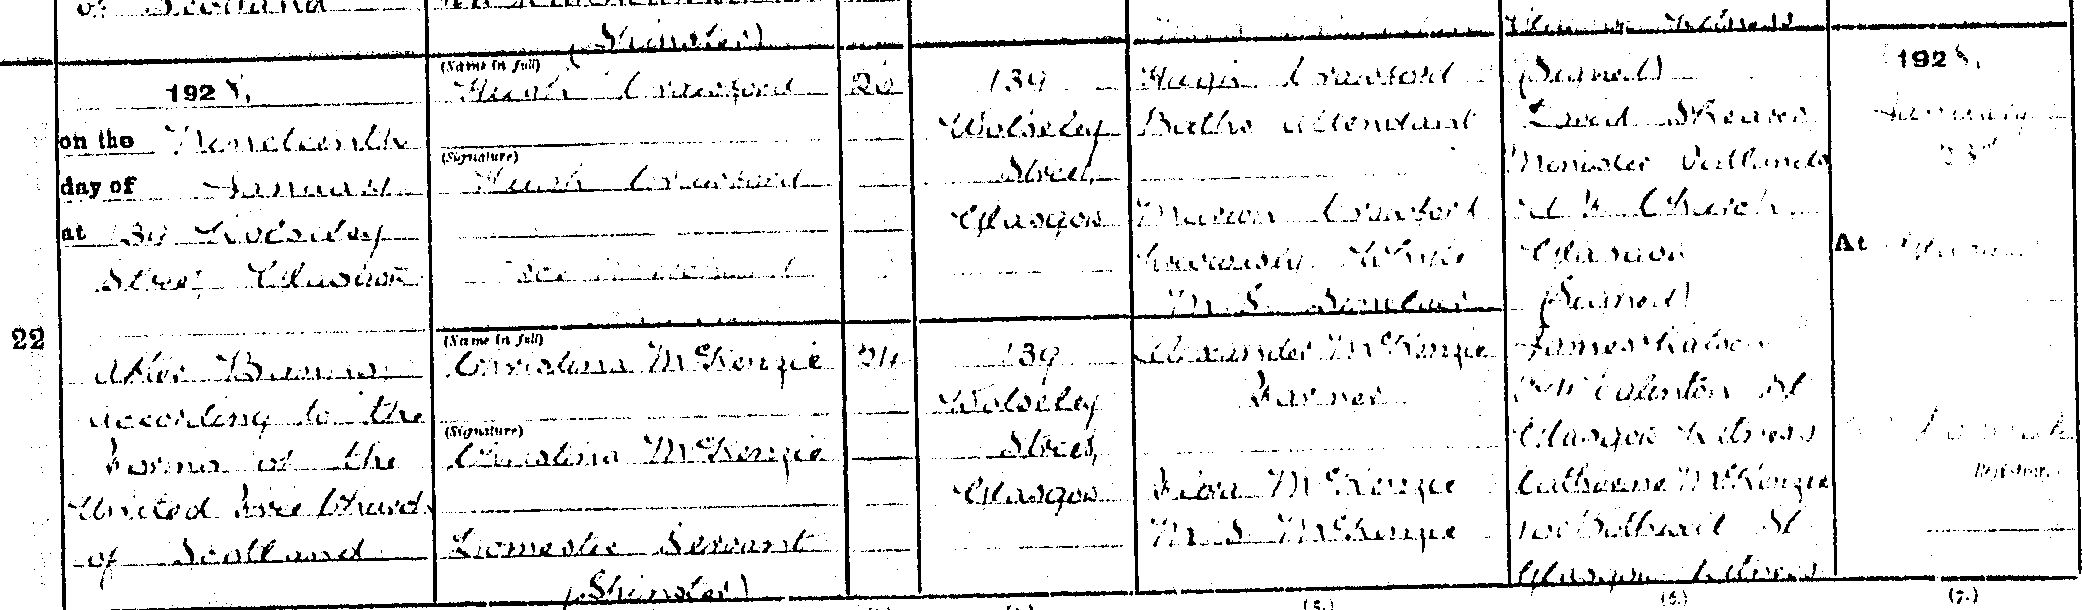 of Scotland
(Spinster)
1928,
on the Nineteenth
day of January
at 139 Wolseley
Street, Glasgow
22
After Banns
according to the
Forms of the
United Free Church
of Scotland
(Name in full)
Hugh Crawford
(Signature)
Hugh Crawford
(Name in full)
Christina McKenzie
(Signature)
Christina McKenzie
Domestic Servant
(Spinster)
26
24
139
Wolseley
Street,
Glasgow
139
Wolseley
Street,
Glasgow
Hugh Crawford
Baths Attendant
Marion Crawford
previously Whyte
M.S. Sinclair
Alexander McKenzie
Farmer
Flora McKenzie
M.S. McKenzie
Glasgow Witness
(Signed)
David Shearer
Minister
U F Church
Glasgow
(Signed)
James Watson
St
Glasgow Witness
Catherine McKenzie
100 Bothwell St
Glasgow Witness
1928,
January
23rd
At Glasgow
Registrar
(5.)
(6.)
(7.)